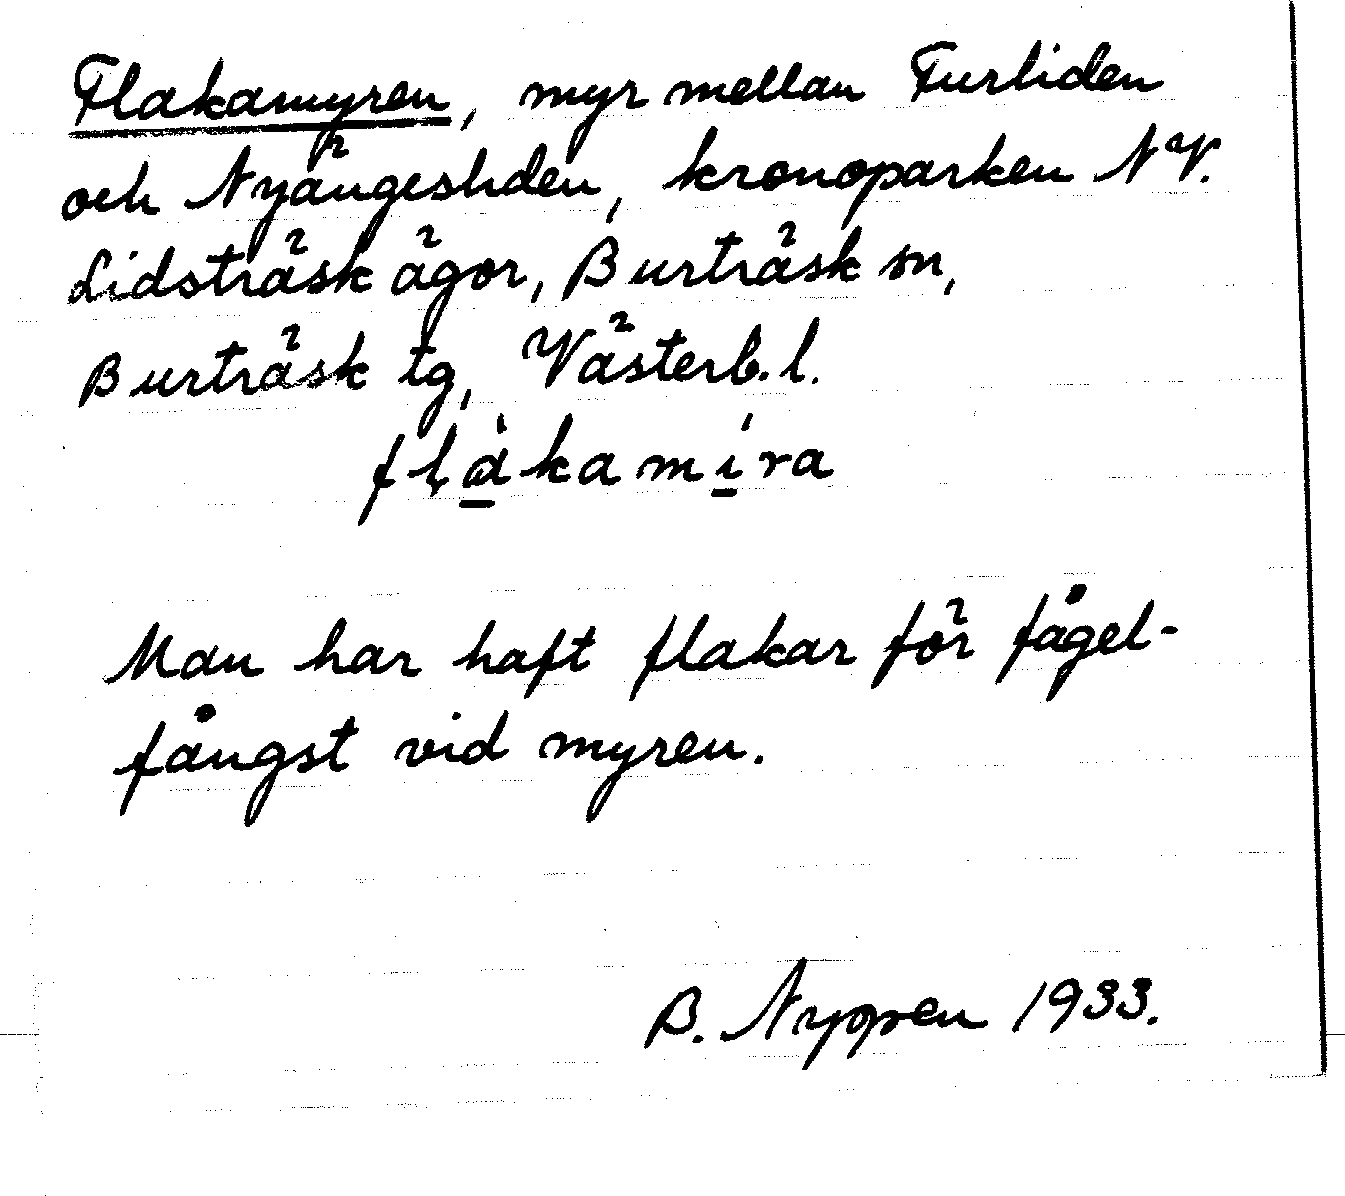 Flakamyren, myr mellan Furliden
och Nyängesliden, kronoparken NV.
Lidsträsk ägor, Burträsk sn,
Burträsk tg, Västerb. l.
flàkamíra
Man har haft flakar för fågel-
fångst vid myren.
B. Nyppen 1933.